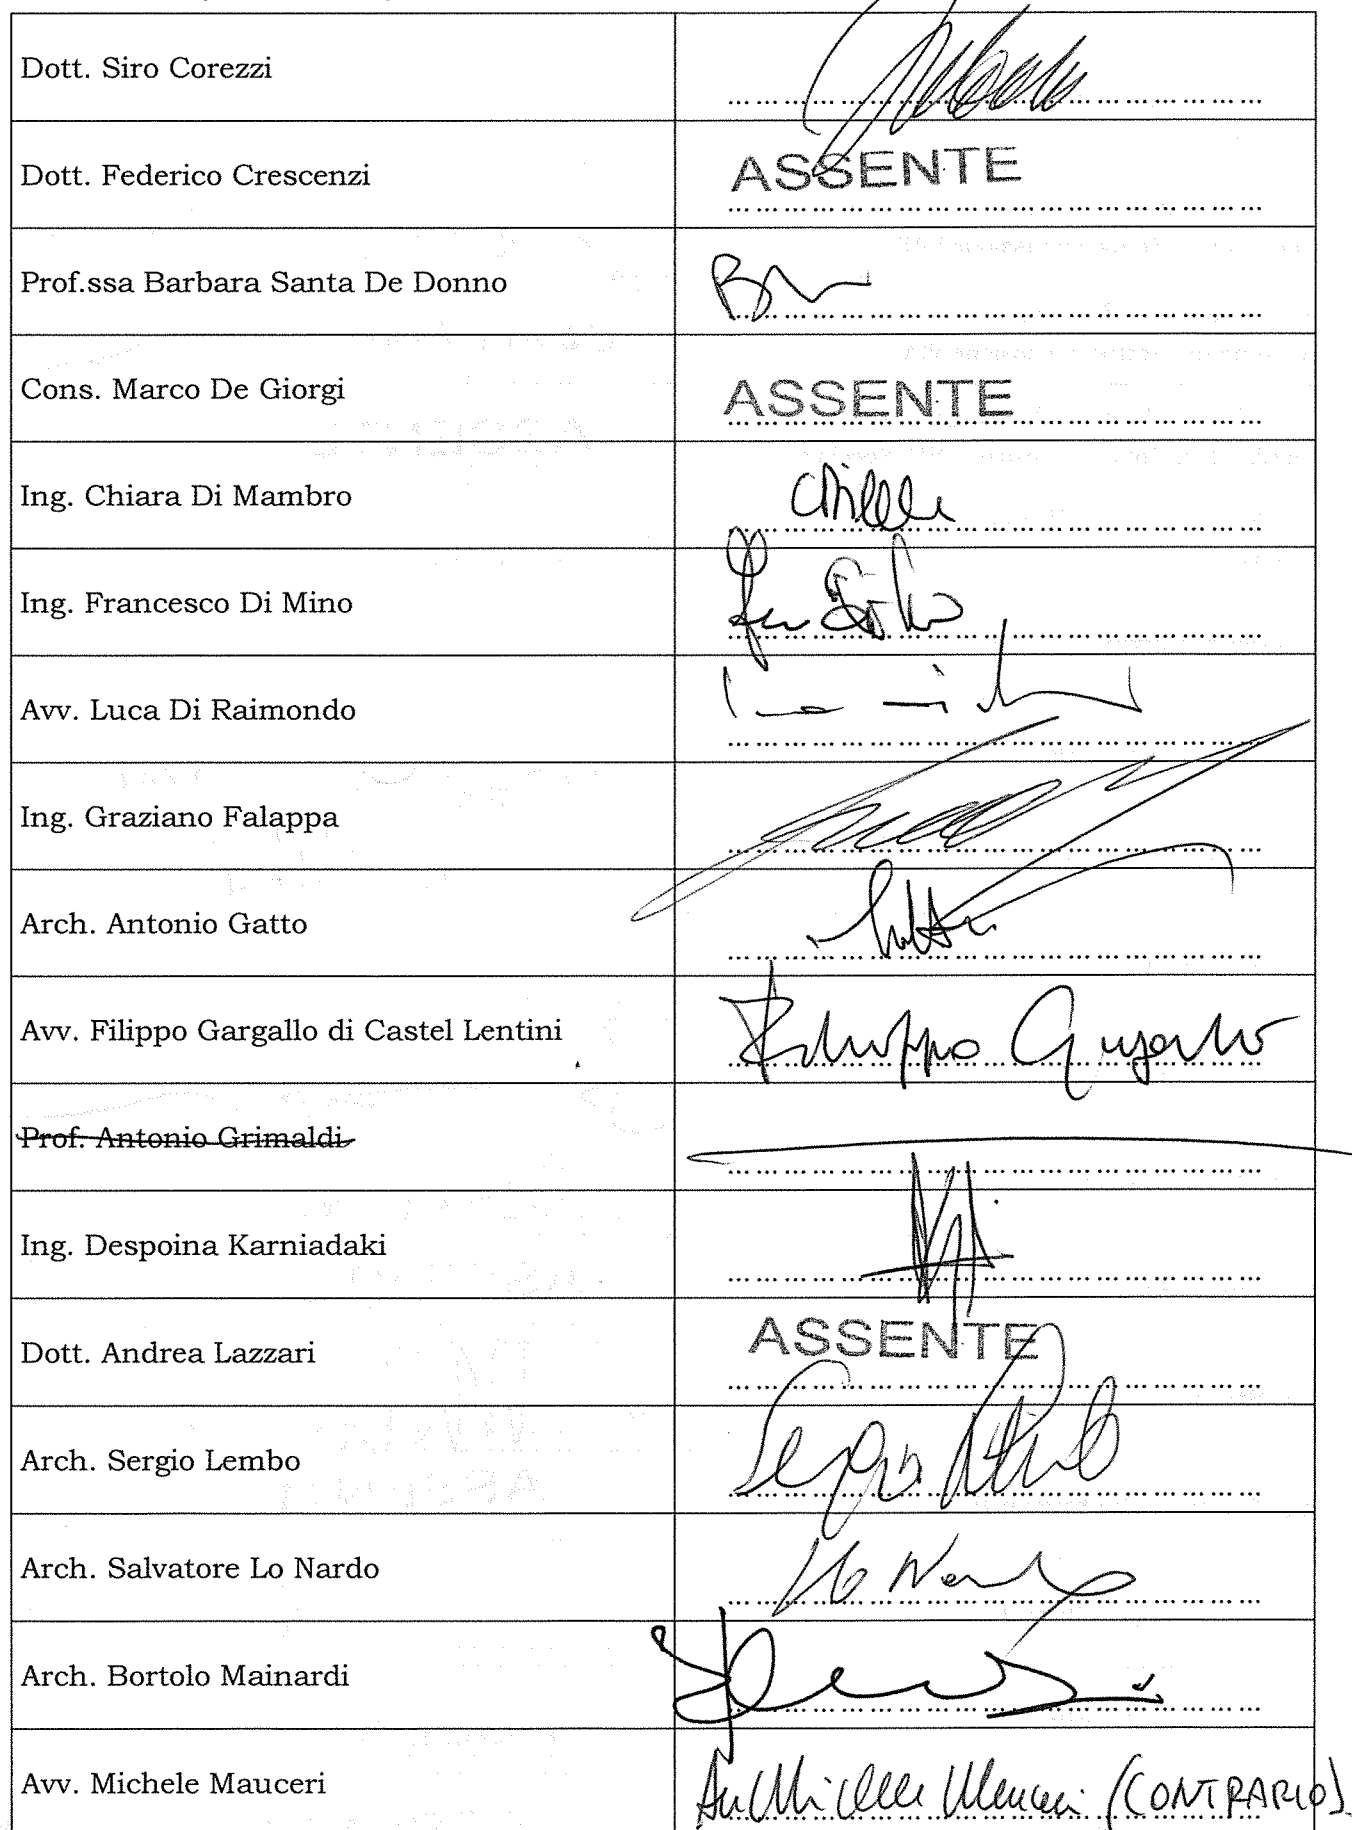 Dott. Siro Corezzi
Dott. Federico Crescenzi ASSENTE
Prof.ssa Barbara Santa De Donno
Cons. Marco De Giorgi ASSENTE
Ing. Chiara Di Mambro
Ing. Francesco Di Mino
Avv. Luca Di Raimondo
Ing. Graziano Falappa
Arch. Antonio Gatto
Avv. Filippo Gargallo di Castel Lentini Filippo Gargallo
Prof. Antonio Grimaldi
Ing. Despoina Karniadaki
Dott. Andrea Lazzari ASSENTE
Arch. Sergio Lembo Sergio Lembo
Arch. Salvatore Lo Nardo Lo Nardo
Arch. Bortolo Mainardi
Avv. Michele Mauceri Avv Michele Mauceri (CONTRARIO)